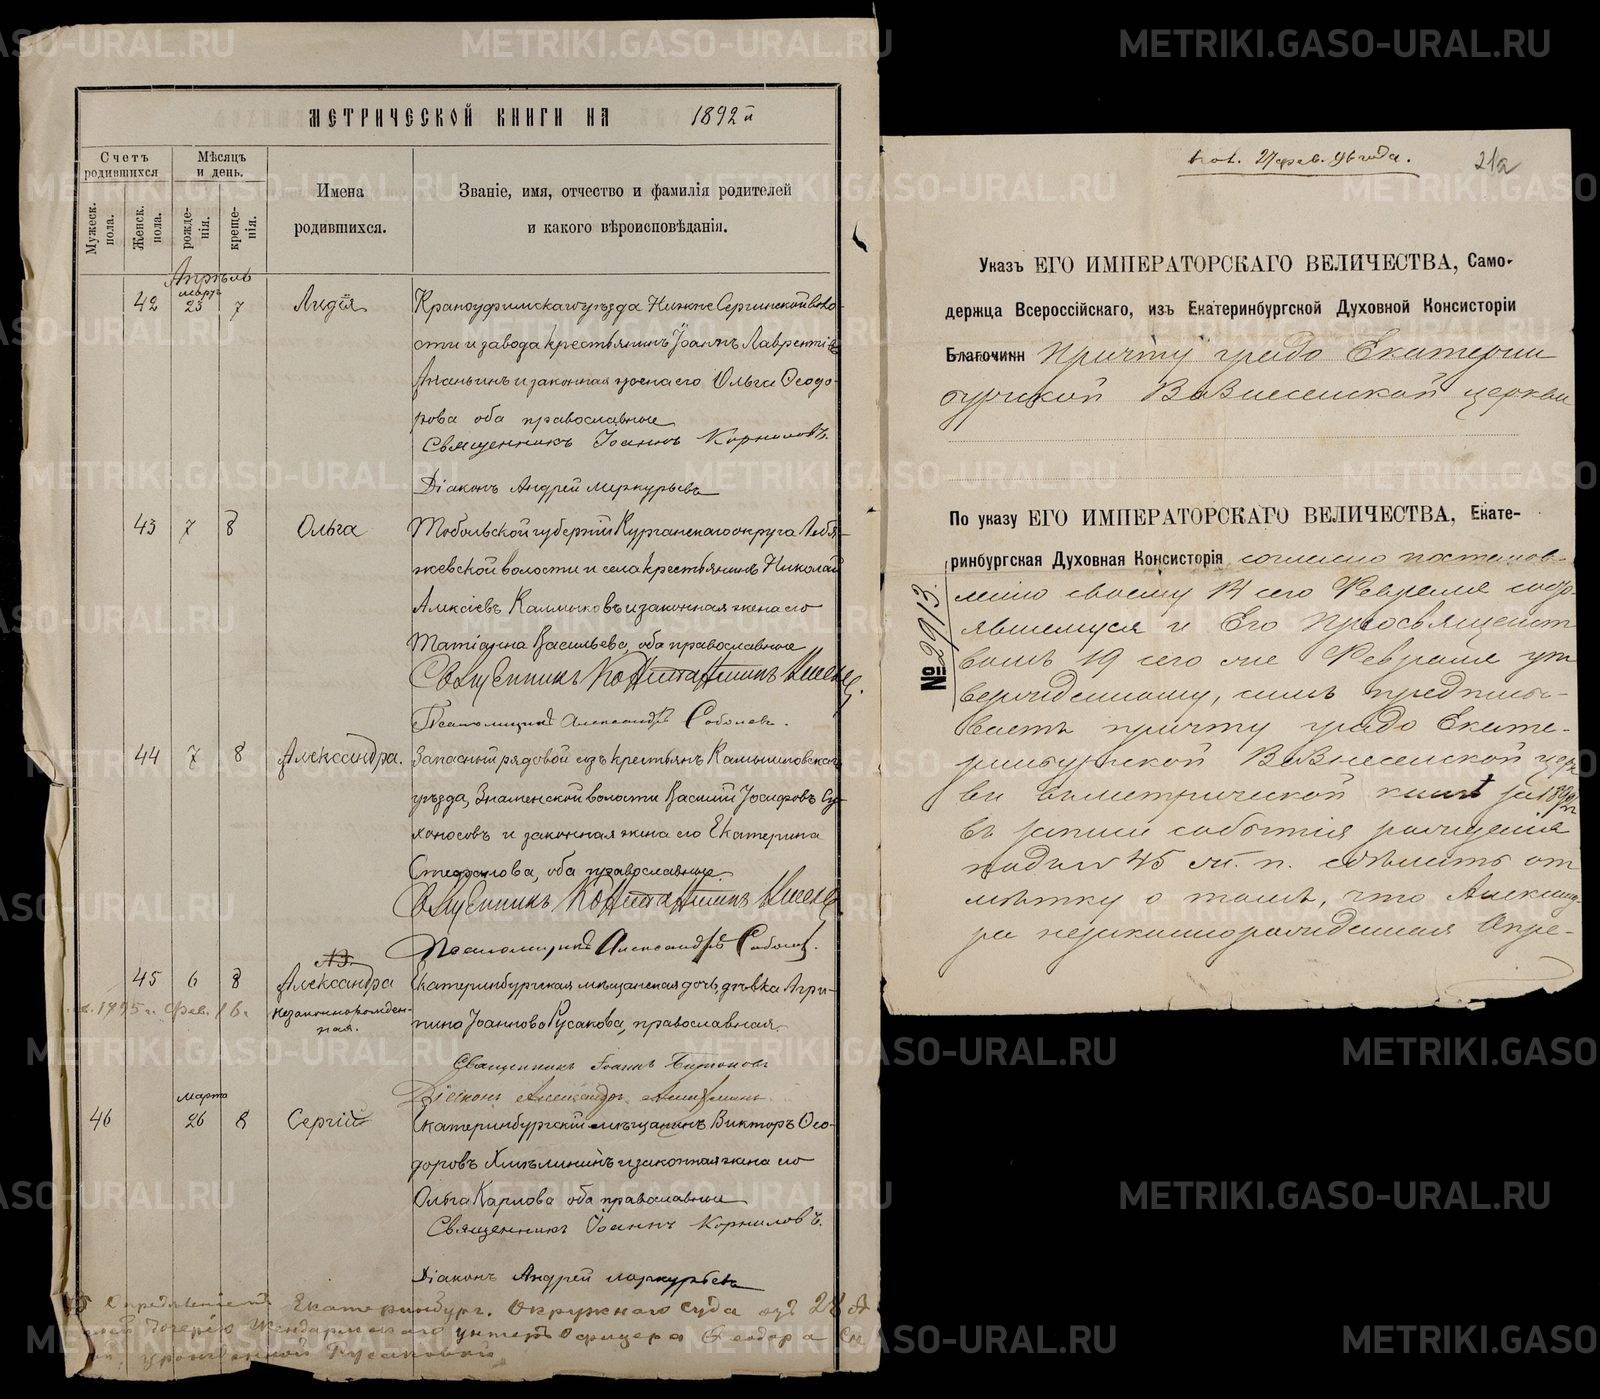 МЕТРИЧЕСКОЙ КНИГИ НА 1892 й
Счетъ родившихся
Мѣсяцъ и день.
Мужеск. пола.
Женск. пола.
рожде- нія.
креще- нія.
Имена
родившихся.
Званіе, имя, отчество и фамилія родителей
и какого вѣроисповѣданія.
Апрѣль
мартъ
42 23 7 Лидія Красноуфимскаго уѣзда Нижне Сергинской воло-
сти и завода крестьянинъ Іоаннъ Лаврентіевъ
Ананьинъ и законная жена его Ольга Ѳеодо-
рова оба православные
Священникъ Іоаннъ Корниловъ.
Діаконъ Андрей Меркурьевъ
43 7 8 Ольга Тобольской губерніи Курганскаго округа Лебя-
жевской волости и села крестьянинъ Николай
Алексіевъ Калмыковъ и законная жена его
Татіанна Васильева, оба православные
Священникъ Константинъ
Псаломщикъ Александръ Соболевъ.
44 7 8 Александра. Запасный рядовой изъ крестьянъ Камышловскаго
уѣзда, Знаменской волости Василій Іосифовъ Су-
хоносовъ и законная жена его Екатерина
Стефанова, оба православные.
Священникъ Константинъ
Псаломщикъ Александръ Соболевъ.
45 6 8 Александра Екатеринбургская мѣщанская дочь, дѣвка Агри-
незаконнорожден-
ная.
пина Іоаннова Русакова, православная.
Священникъ Іоаннъ
Діаконъ Александръ
марта
46 26 8 Сергій Екатеринбургскій мѣщанинъ Викторъ Ѳео-
доровъ Хмѣлининъ и законная жена его
Ольга Карлова оба православные
Священникъ Іоаннъ Корниловъ.
Діаконъ Андрей Меркурьевъ
Опредѣленіемъ Екатеринбург. Окружнаго Суда отъ 28
дочерью Жандармскаго унтеръ офицера Ѳеодора
Русаковой
пол. 27 фев. 96 года.
21а
Указъ ЕГО ИМПЕРАТОРСКАГО ВЕЛИЧЕСТВА, Само-
держца Всероссійскаго, изъ Екатеринбургской Духовной Консисторіи
Благочинн Причту градо Екатерин
бургской Вознесенской церкви
По указу ЕГО ИМПЕРАТОРСКАГО ВЕЛИЧЕСТВА, Екате-
ринбургская Духовная Консисторія согласно постанов-
№ 2913.
ленію своему 14 сего Февраля состо-
явшемуся и Его Преосвященст
вомъ 19 сего же Февраля ут
вержденному, симъ предписы-
ваетъ причту градо Екате-
ринбургской Вознесенской церк
ви въ метрической книгѣ за 1892 г.
въ записи событія рожденія
подъ № 45 ж. п. сдѣлать от
мѣтку о томъ, что Александ-
ра незаконнорожденная Опре-
METRIKI.GASO-URAL.RU